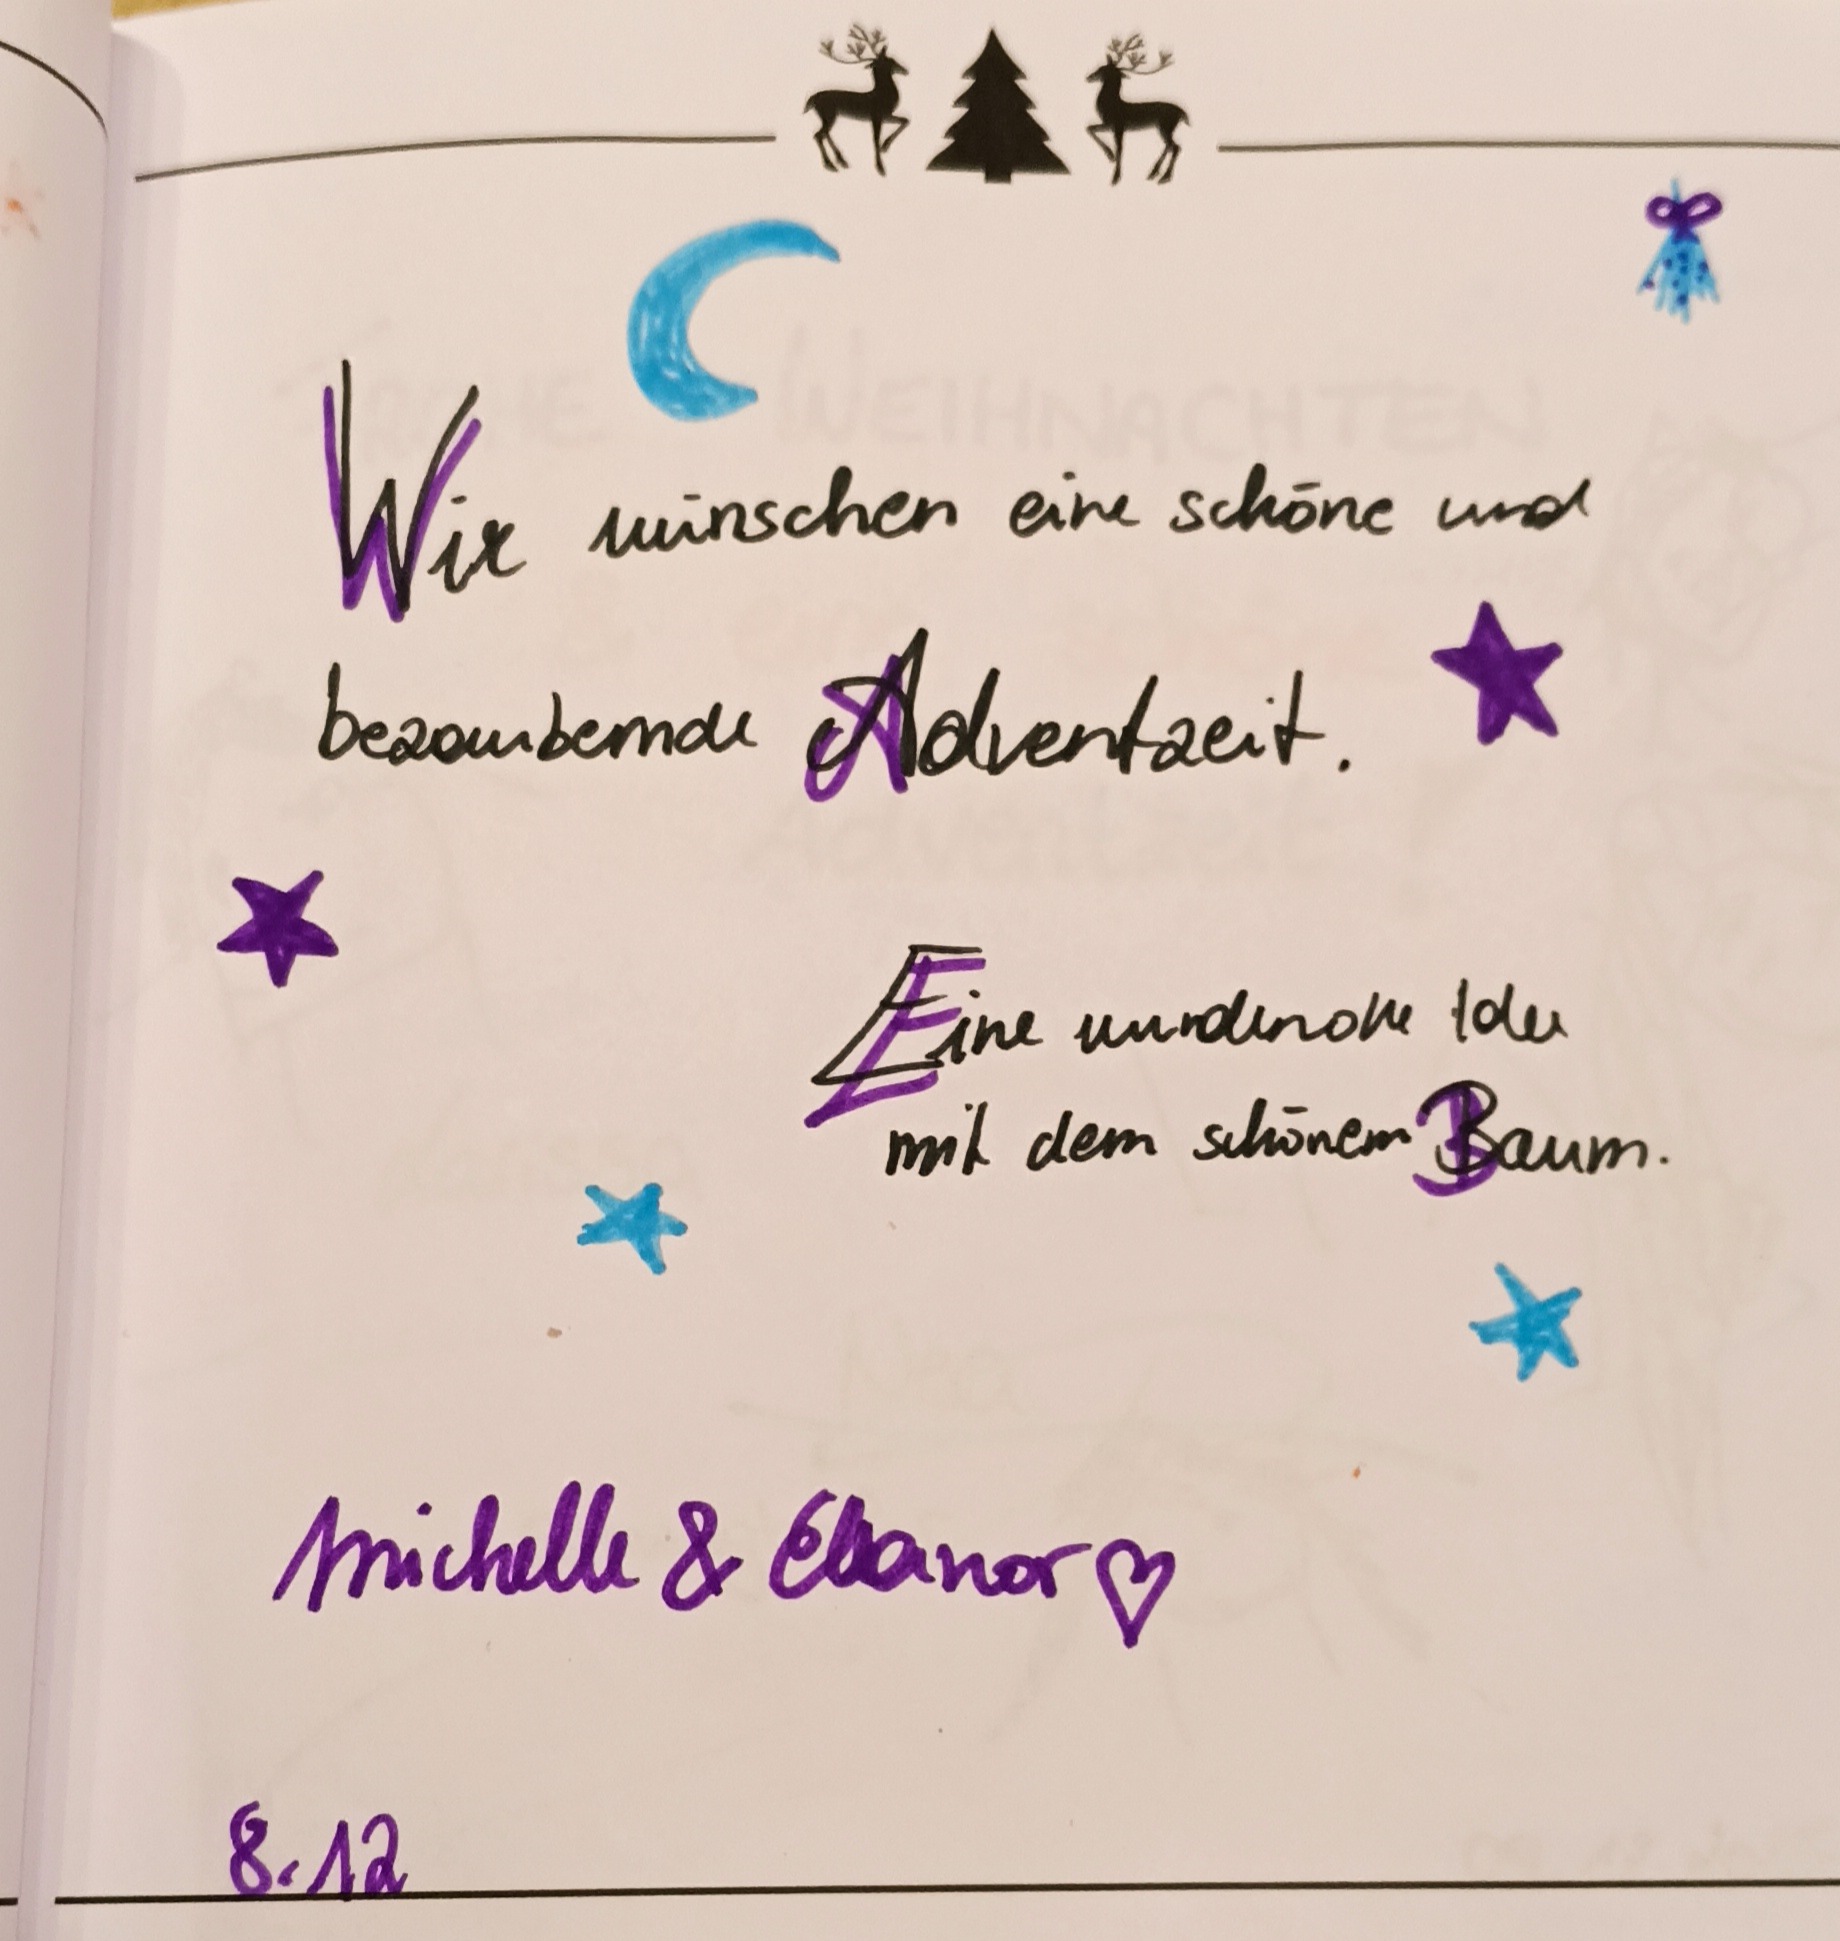 Wir wünschen eine schöne und
bezaubernde Adventzeit.
Eine wundervolle Idee
mit dem schönem Baum.
Michelle & Eleanor
8.12